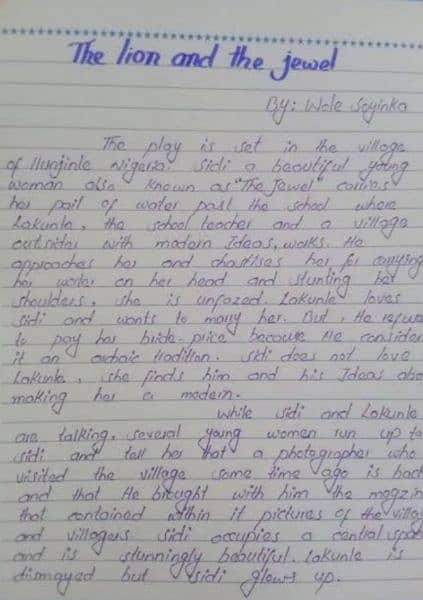 The lion and the jewel
By: Wole Soyinka
The play is set in the village
of Ilunjinle Nigeria. Sidi a beautiful young
woman also known as "The Jewel" carries
her pail of water past the school where
Lakunle, the school teacher and a village
outsider with modern Ideas, works. He
approaches her and chastises her for carrying
her water on her head and stunting her
shoulders, she is unfazed. Lakunle loves
Sidi and wants to marry her. But, He refuse
to pay her bride-price because He consider
it an archaic tradition. Sidi does not love
Lakunle, she finds him and his Ideas abo
making her a modern.
While sidi and Lakunle
are talking, several young women run up to
sidi and tell her that a photographer who
visited the village some time ago is back
and that He brought with him the magzin
that contained within it pictures of the villag
and villagers. sidi occupies a central spot
and is stunningly beautiful. Lakunle is
dismayed but sidi glows up.